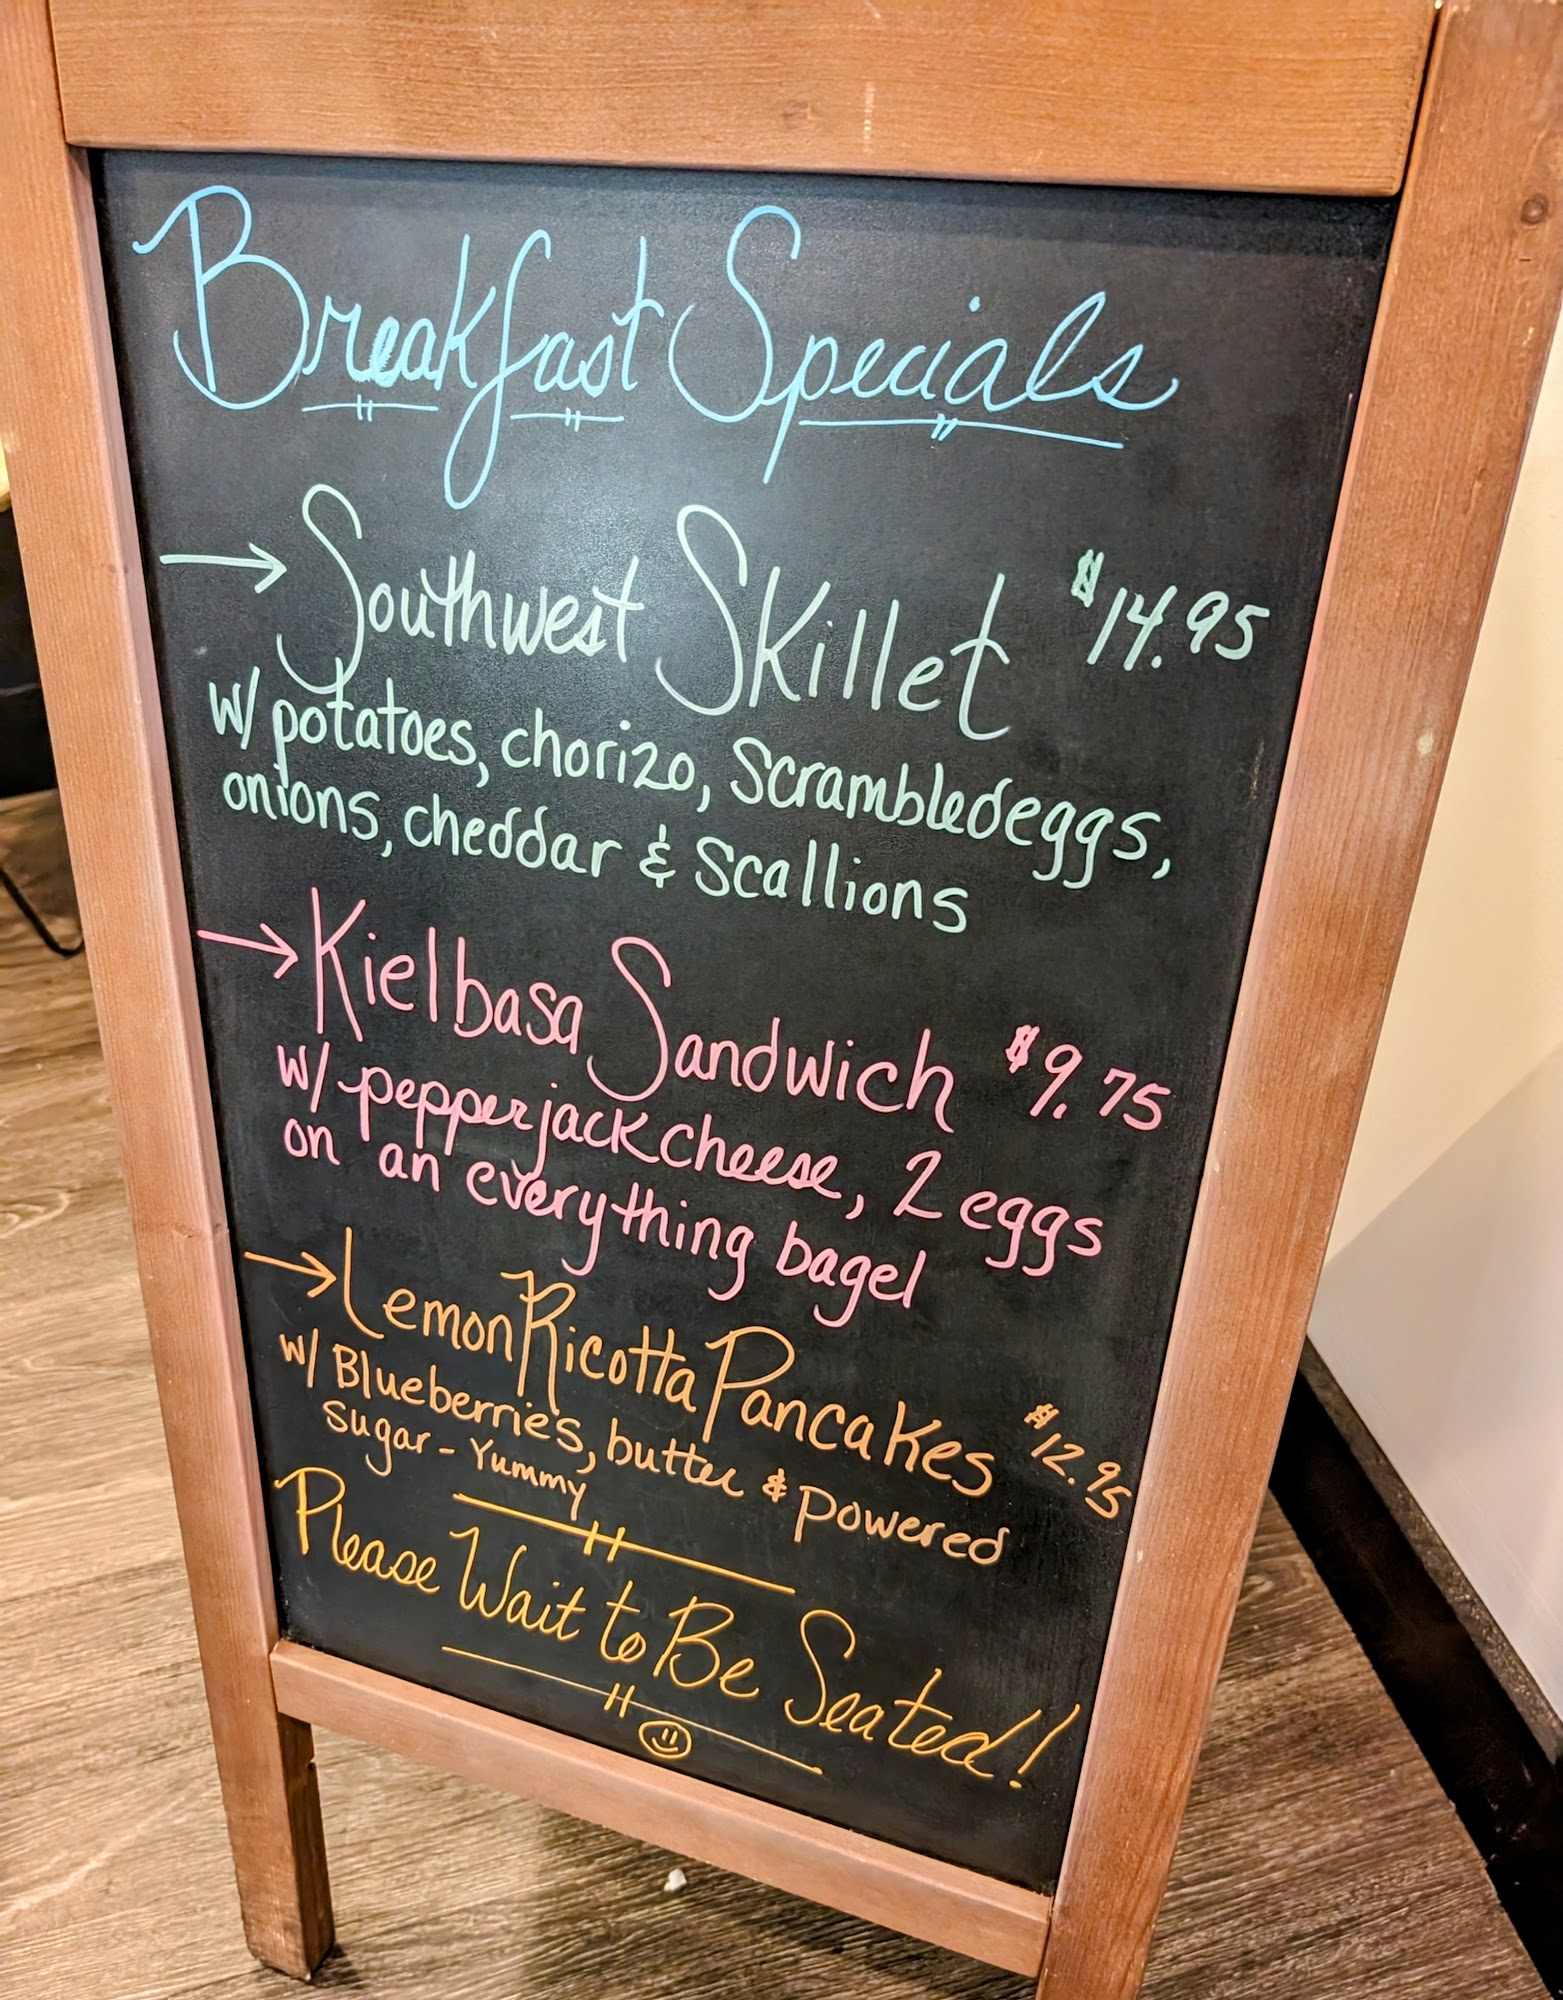 Breakfast Specials
→ Southwest Skillet $14.95
w/ potatoes, chorizo, scrambled eggs,
onions, cheddar & scallions
→ Kielbasa Sandwich $9.75
w/ pepperjack cheese, 2 eggs
on an everything bagel
→ Lemon Ricotta Pancakes $12.95
w/ Blueberries, butter & powered
sugar - Yummy
Please Wait to Be Seated!